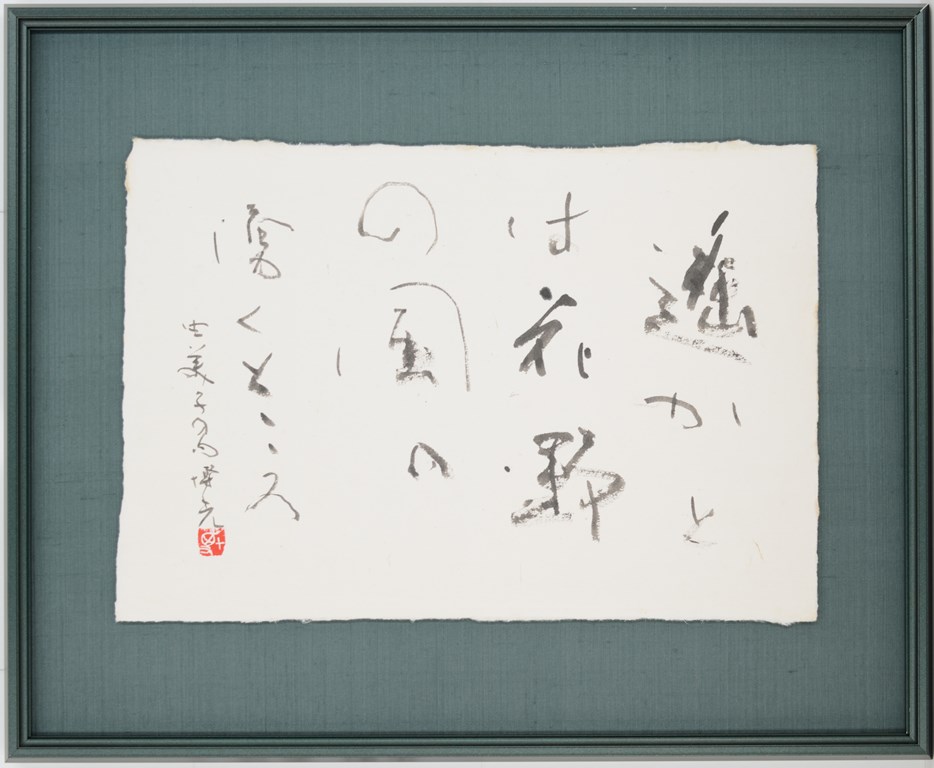 遥かと
は花野
の風の
湧くところ
由美子の句 博元